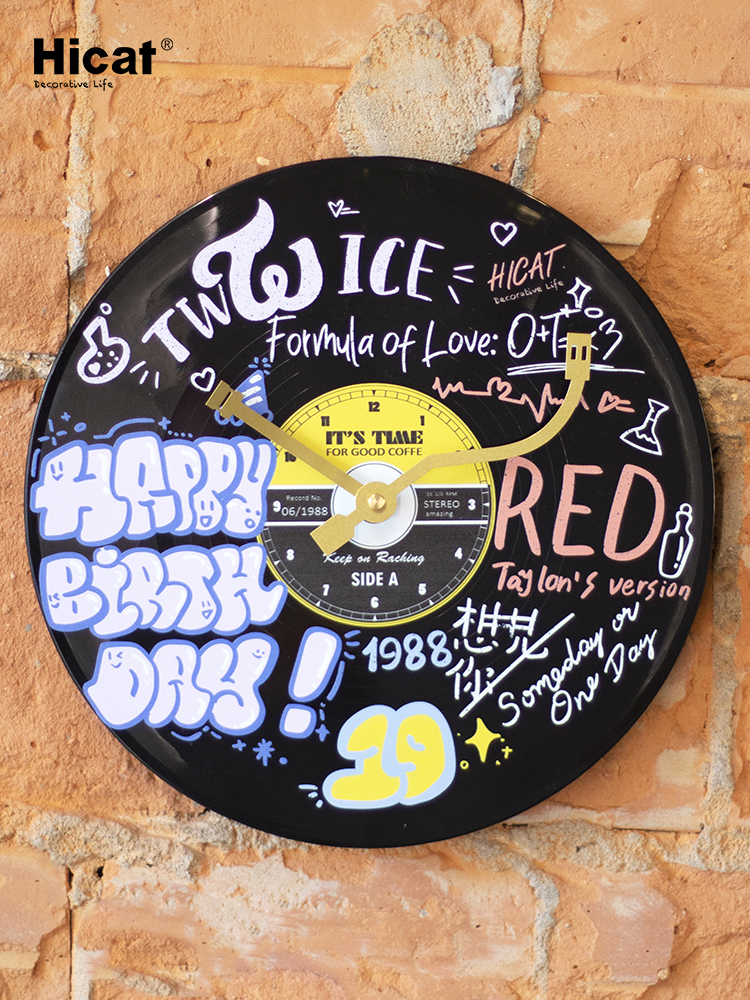 Hicat®
Decorative Life
TWICE
HICAT
Decorative Life
Formula of Love: O+T=<3
12
11
1
10
IT'S TIME
FOR GOOD COFFE
Record No.
06/1988
33 1/3 RPM
STEREO
amazing
9
3
8
4
Keep on Raching
SIDE A
7
5
6
HAPPY
BIRTH
DAY!
RED
Taylon's version
1988
想见
你
Someday or
One Day
19